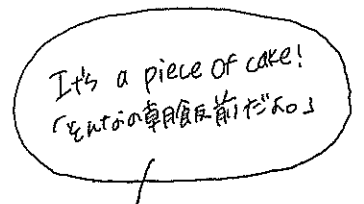 It's a piece of cake!
「そんなの朝飯前だよ。」